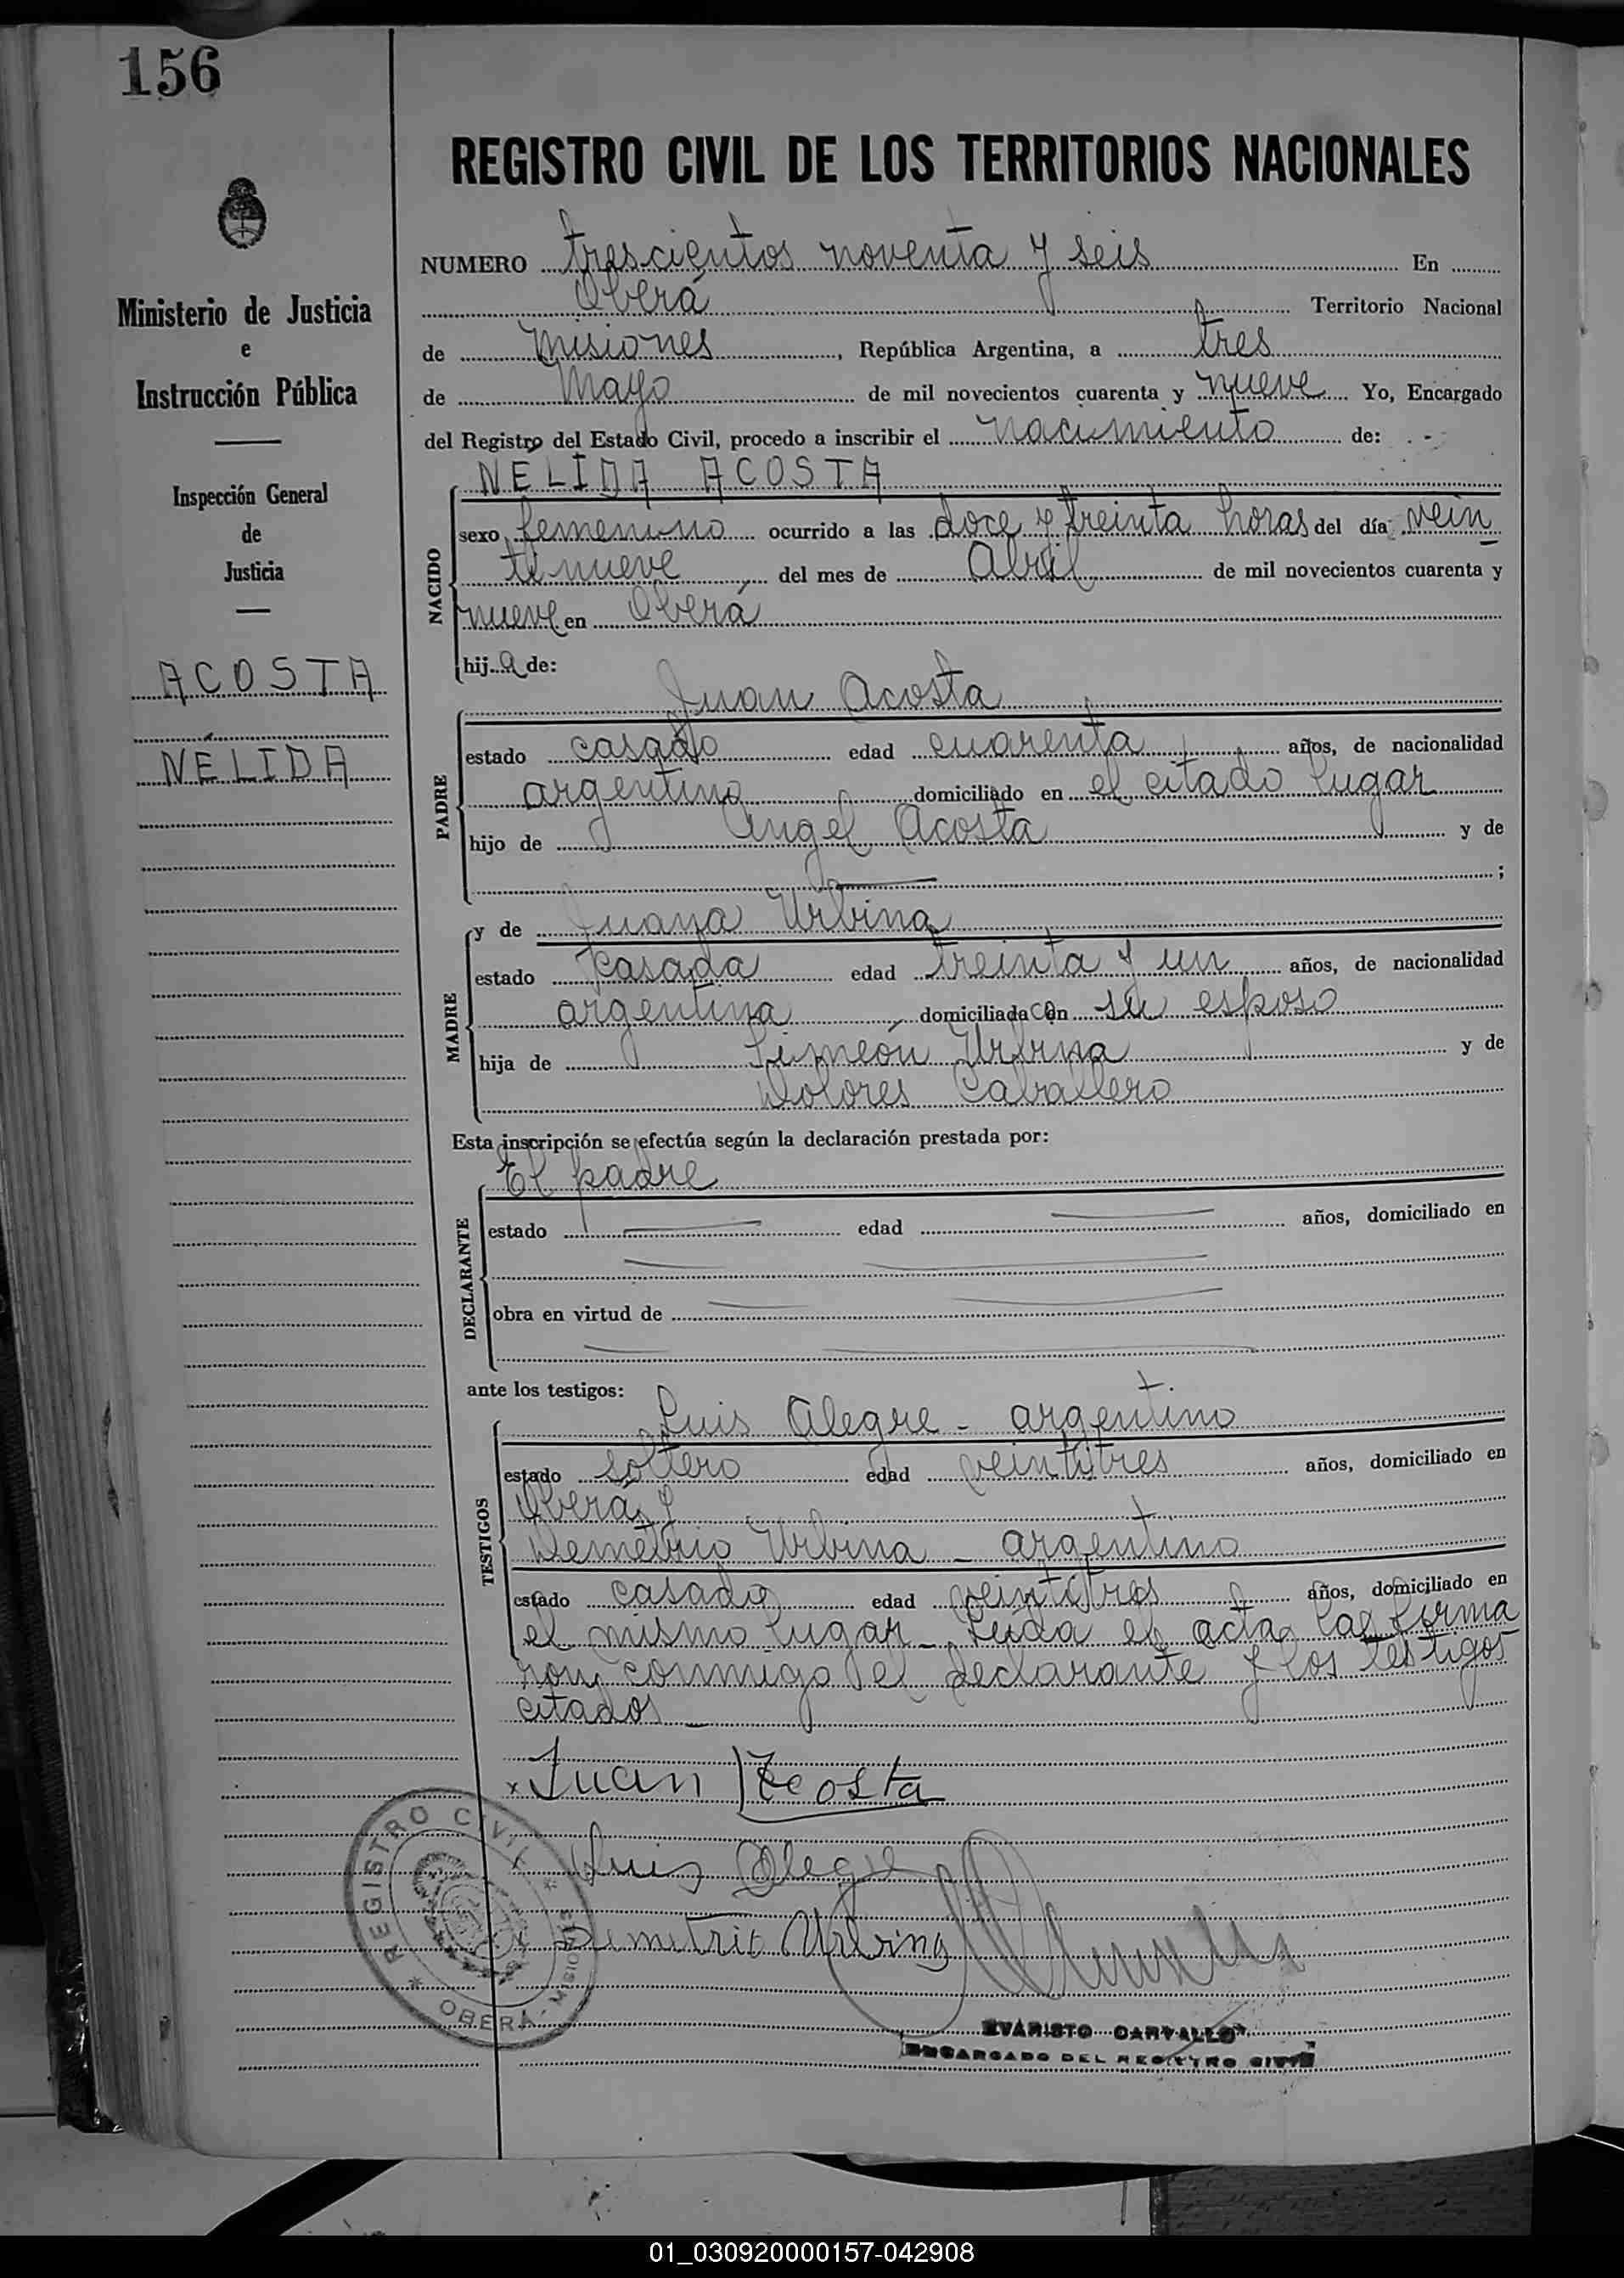 156
REGISTRO CIVIL DE LOS TERRITORIOS NACIONALES
Ministerio de Justicia
e
Instrucción Pública
Inspección General
de
Justicia
ACOSTA
NÉLIDA
NUMERO trescientos noventa y seis En
Oberá Territorio Nacional
de Misiones, República Argentina, a tres
de Mayo de mil novecientos cuarenta y nueve Yo, Encargado
del Registro del Estado Civil, procedo a inscribir el nacimiento de:
NÉLIDA ACOSTA
NACIDO
sexo femenino ocurrido a las doce y treinta horas del día vein
tinueve del mes de Abril de mil novecientos cuarenta y
nueve en Oberá
hija de:
Juan Acosta
PADRE
estado casado edad cuarenta años, de nacionalidad
argentino domiciliado en el citado lugar
hijo de Angel Acosta y de
;
y de Juana Urbina
MADRE
estado casada edad treinta y un años, de nacionalidad
argentina domiciliada con su esposo
hija de Simeón Urbina y de
Dolores Caballero
Esta inscripción se efectúa según la declaración prestada por:
El padre
DECLARANTE
estado edad años, domiciliado en
obra en virtud de
ante los testigos:
Luis Alegre - argentino
TESTIGOS
estado soltero edad veintitres años, domiciliado en
Oberá y
Demetrio Urbina - argentino
estado casado edad veintitres años, domiciliado en
el mismo lugar - Leída el acta, la firma
ron conmigo el declarante y los testigos
citados -
x Juan Acosta
Luis Alegre
Demetrio Urbina
REGISTRO CIVIL
OBERÁ - MISIONES
EVARISTO CARVALLO
ENCARGADO DEL REGISTRO CIVIL
01_030920000157-042908